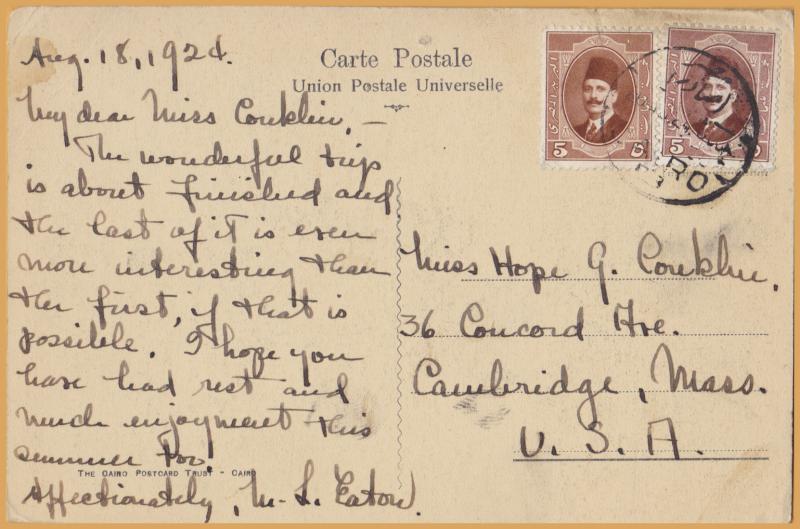 Aug. 18, 1924.
Carte Postale
Union Postale Universelle
My dear Miss Conklin, —
The wonderful trip
is about finished and
the last of it is even
more interesting than
the first, if that is
possible. I hope you
have had rest and
much enjoyment this
summer too.
Affectionately, M. L. Eaton.
THE CAIRO POSTCARD TRUST - CAIRO
5 5
5 5
CAIRO
Miss Hope G. Conklin,
36 Concord Ave.
Cambridge, Mass.
U. S. A.